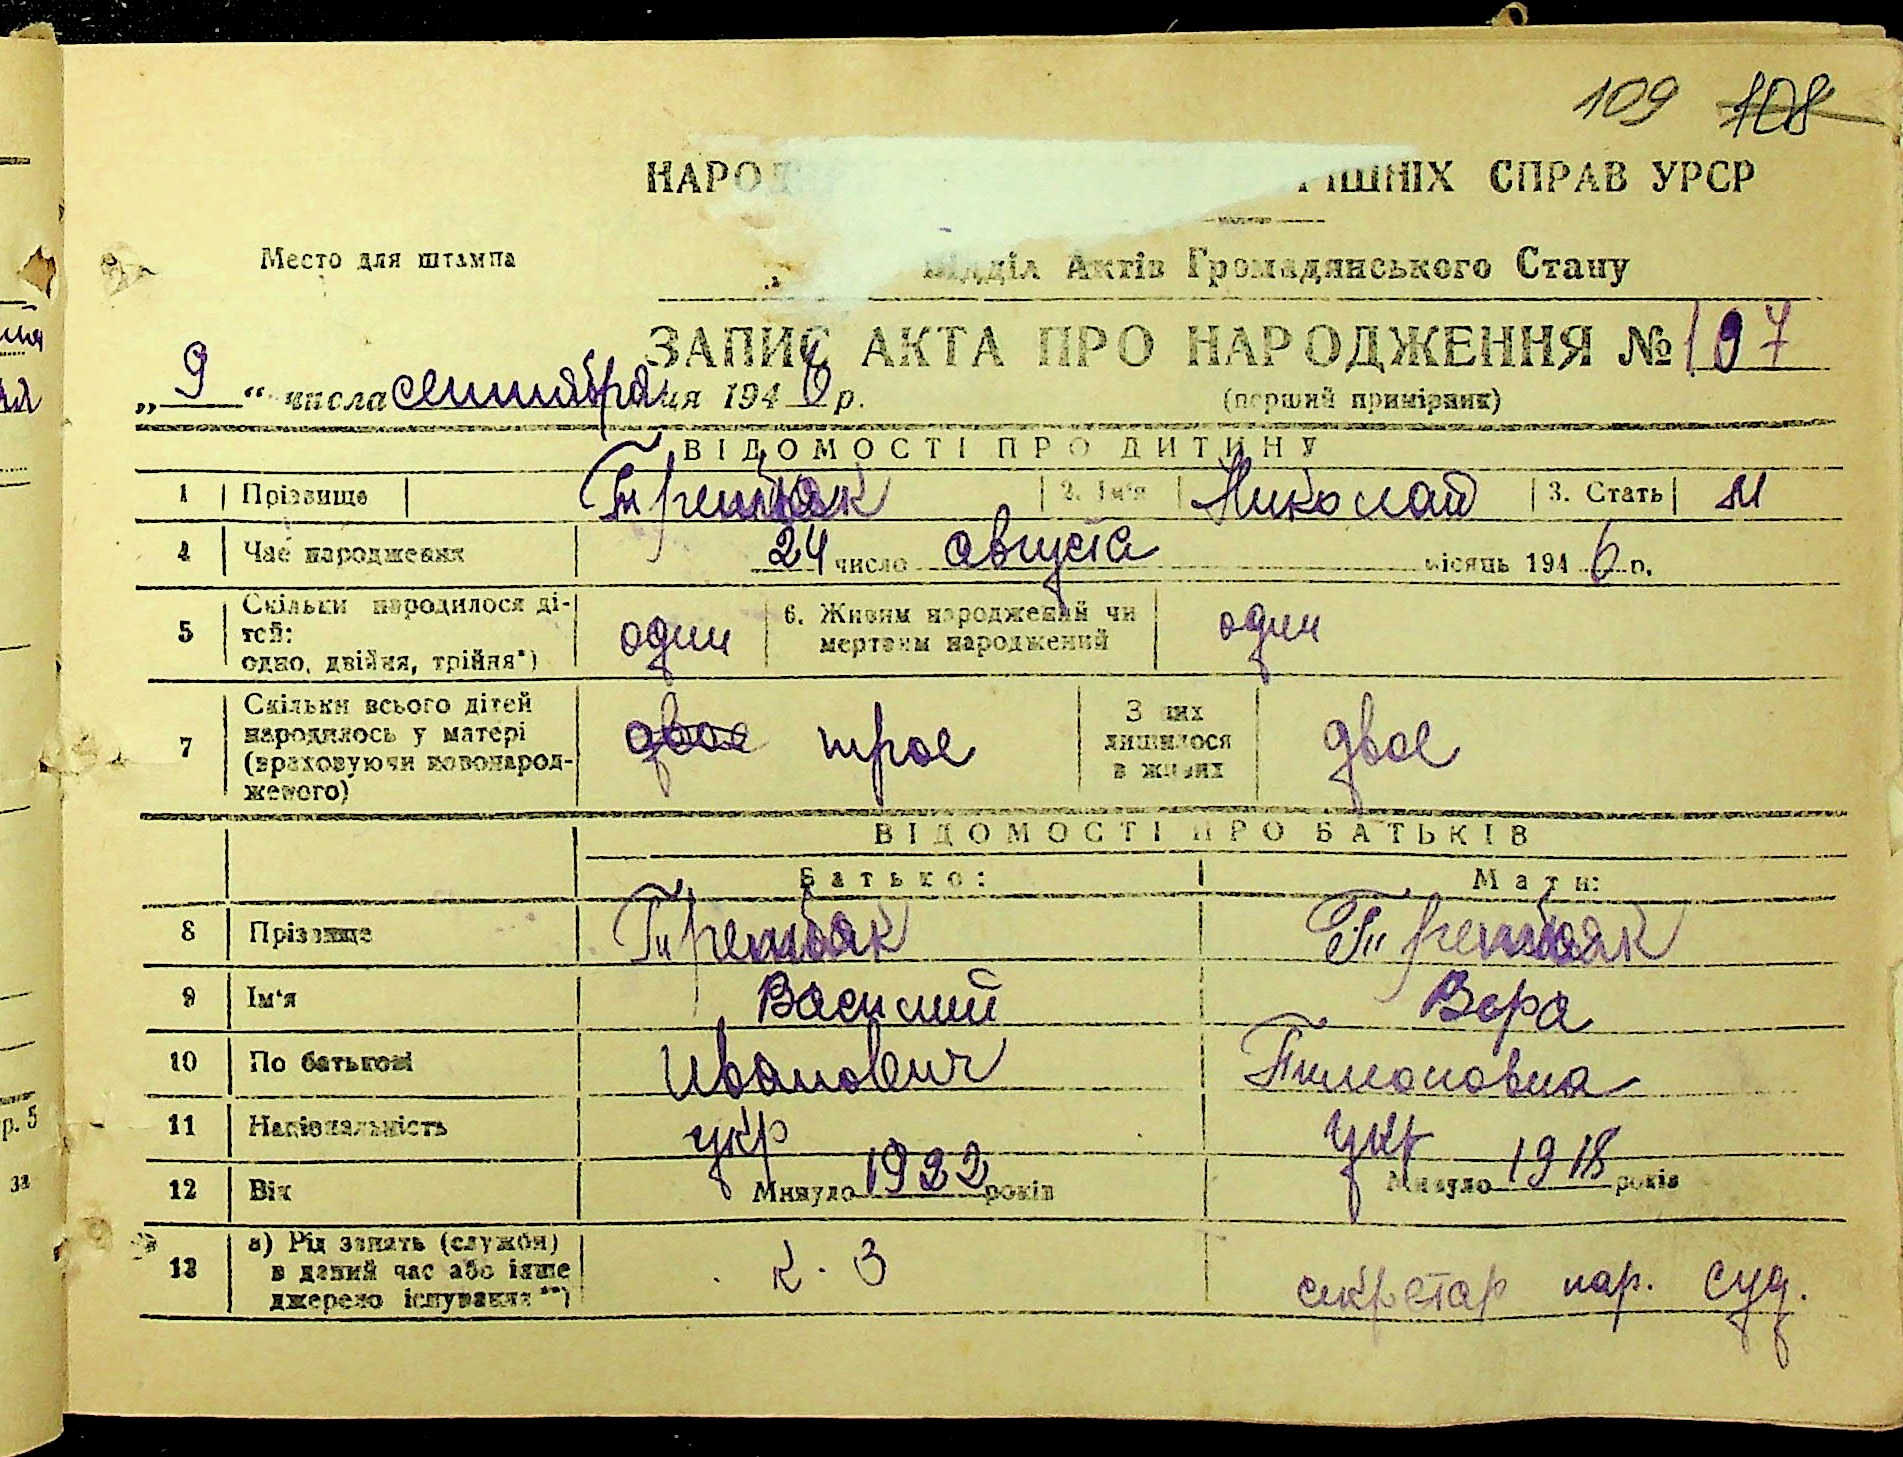 109 108
НАРОД РІШНІХ СПРАВ УРСР
Место для штампа
Відділ Актів Громадянського Стану
ЗАПИС АКТА ПРО НАРОДЖЕННЯ № 197
„ 9 “ числа сентября ця 194 6 р.
(перший примірник)
ВІДОМОСТІ ПРО ДИТИНУ
1 Прізвище Третьяк 2. Ім'я Николай 3. Стать м
4 Час народження 24 число августа місяць 194 6 р.
5 Скільки народилося ді-
тей:
одно, двійня, трійня*) один 6. Живим народжений чи
мертвим народжений один
7 Скільки всього дітей
народилось у матері
(враховуючи новонарод-
женого) двое трое З них
лишилося
в живих двое
ВІДОМОСТІ ПРО БАТЬКІВ
Батько: Мати:
8 Прізвище Третьяк Третьяк
9 Ім'я Василий Вера
10 По батькові Иванович
11 Національність укр укр
12 Вік Минуло 1922 років Минуло 1918 років
13 а) Рід занять (служби)
в даний час або інше
джерело існування**) к. з секретар нар. суд.
р. 5
за